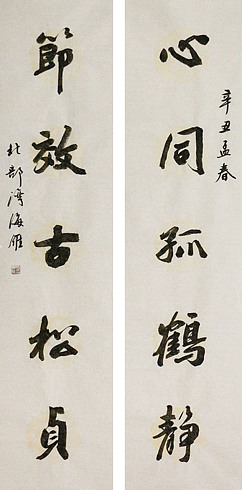 辛丑孟春
心同孤鶴静
節效古松貞
北部湾海雁